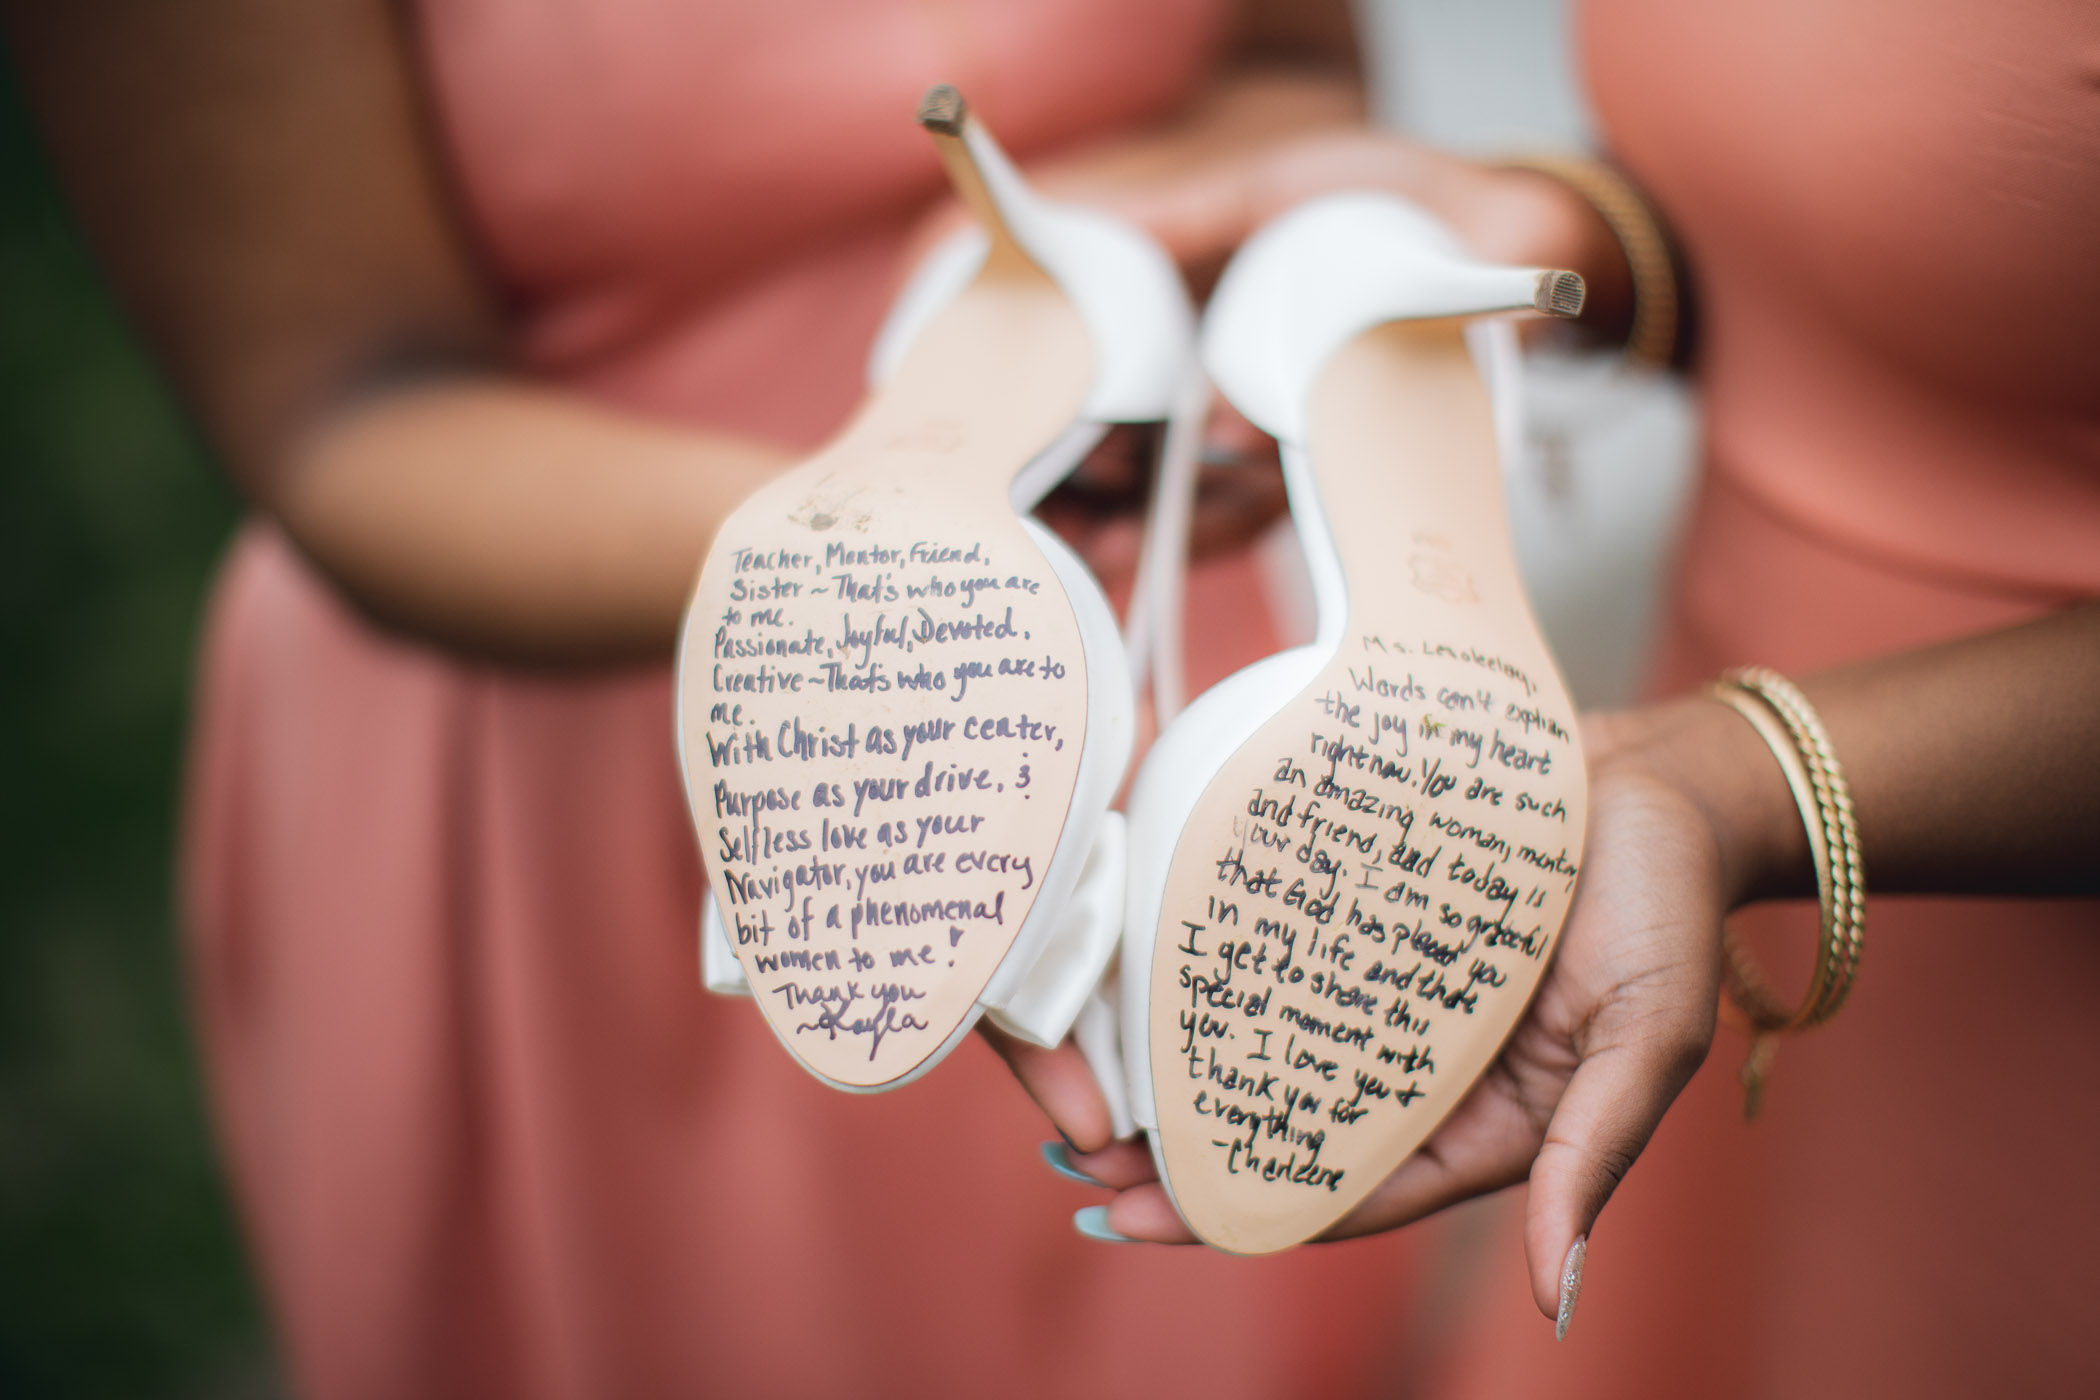 Teacher, Mentor, Friend,
Sister ~ That's who you are
to me.
Passionate, Joyful, Devoted,
Creative ~ That's who you are to
me.
With Christ as your center,
Purpose as your drive, &
Selfless love as your
Navigator, you are every
bit of a phenomenal
women to me!
Thank you
~Kayla
Ms.
Words can't explian
the joy in my heart
right now. You are such
an amazing woman, mentor,
and friend, and today is
your day. I am so grateful
that God has placed you
in my life and that
I get to share this
special moment with
you. I love you &
thank you for
everything
-Charleene